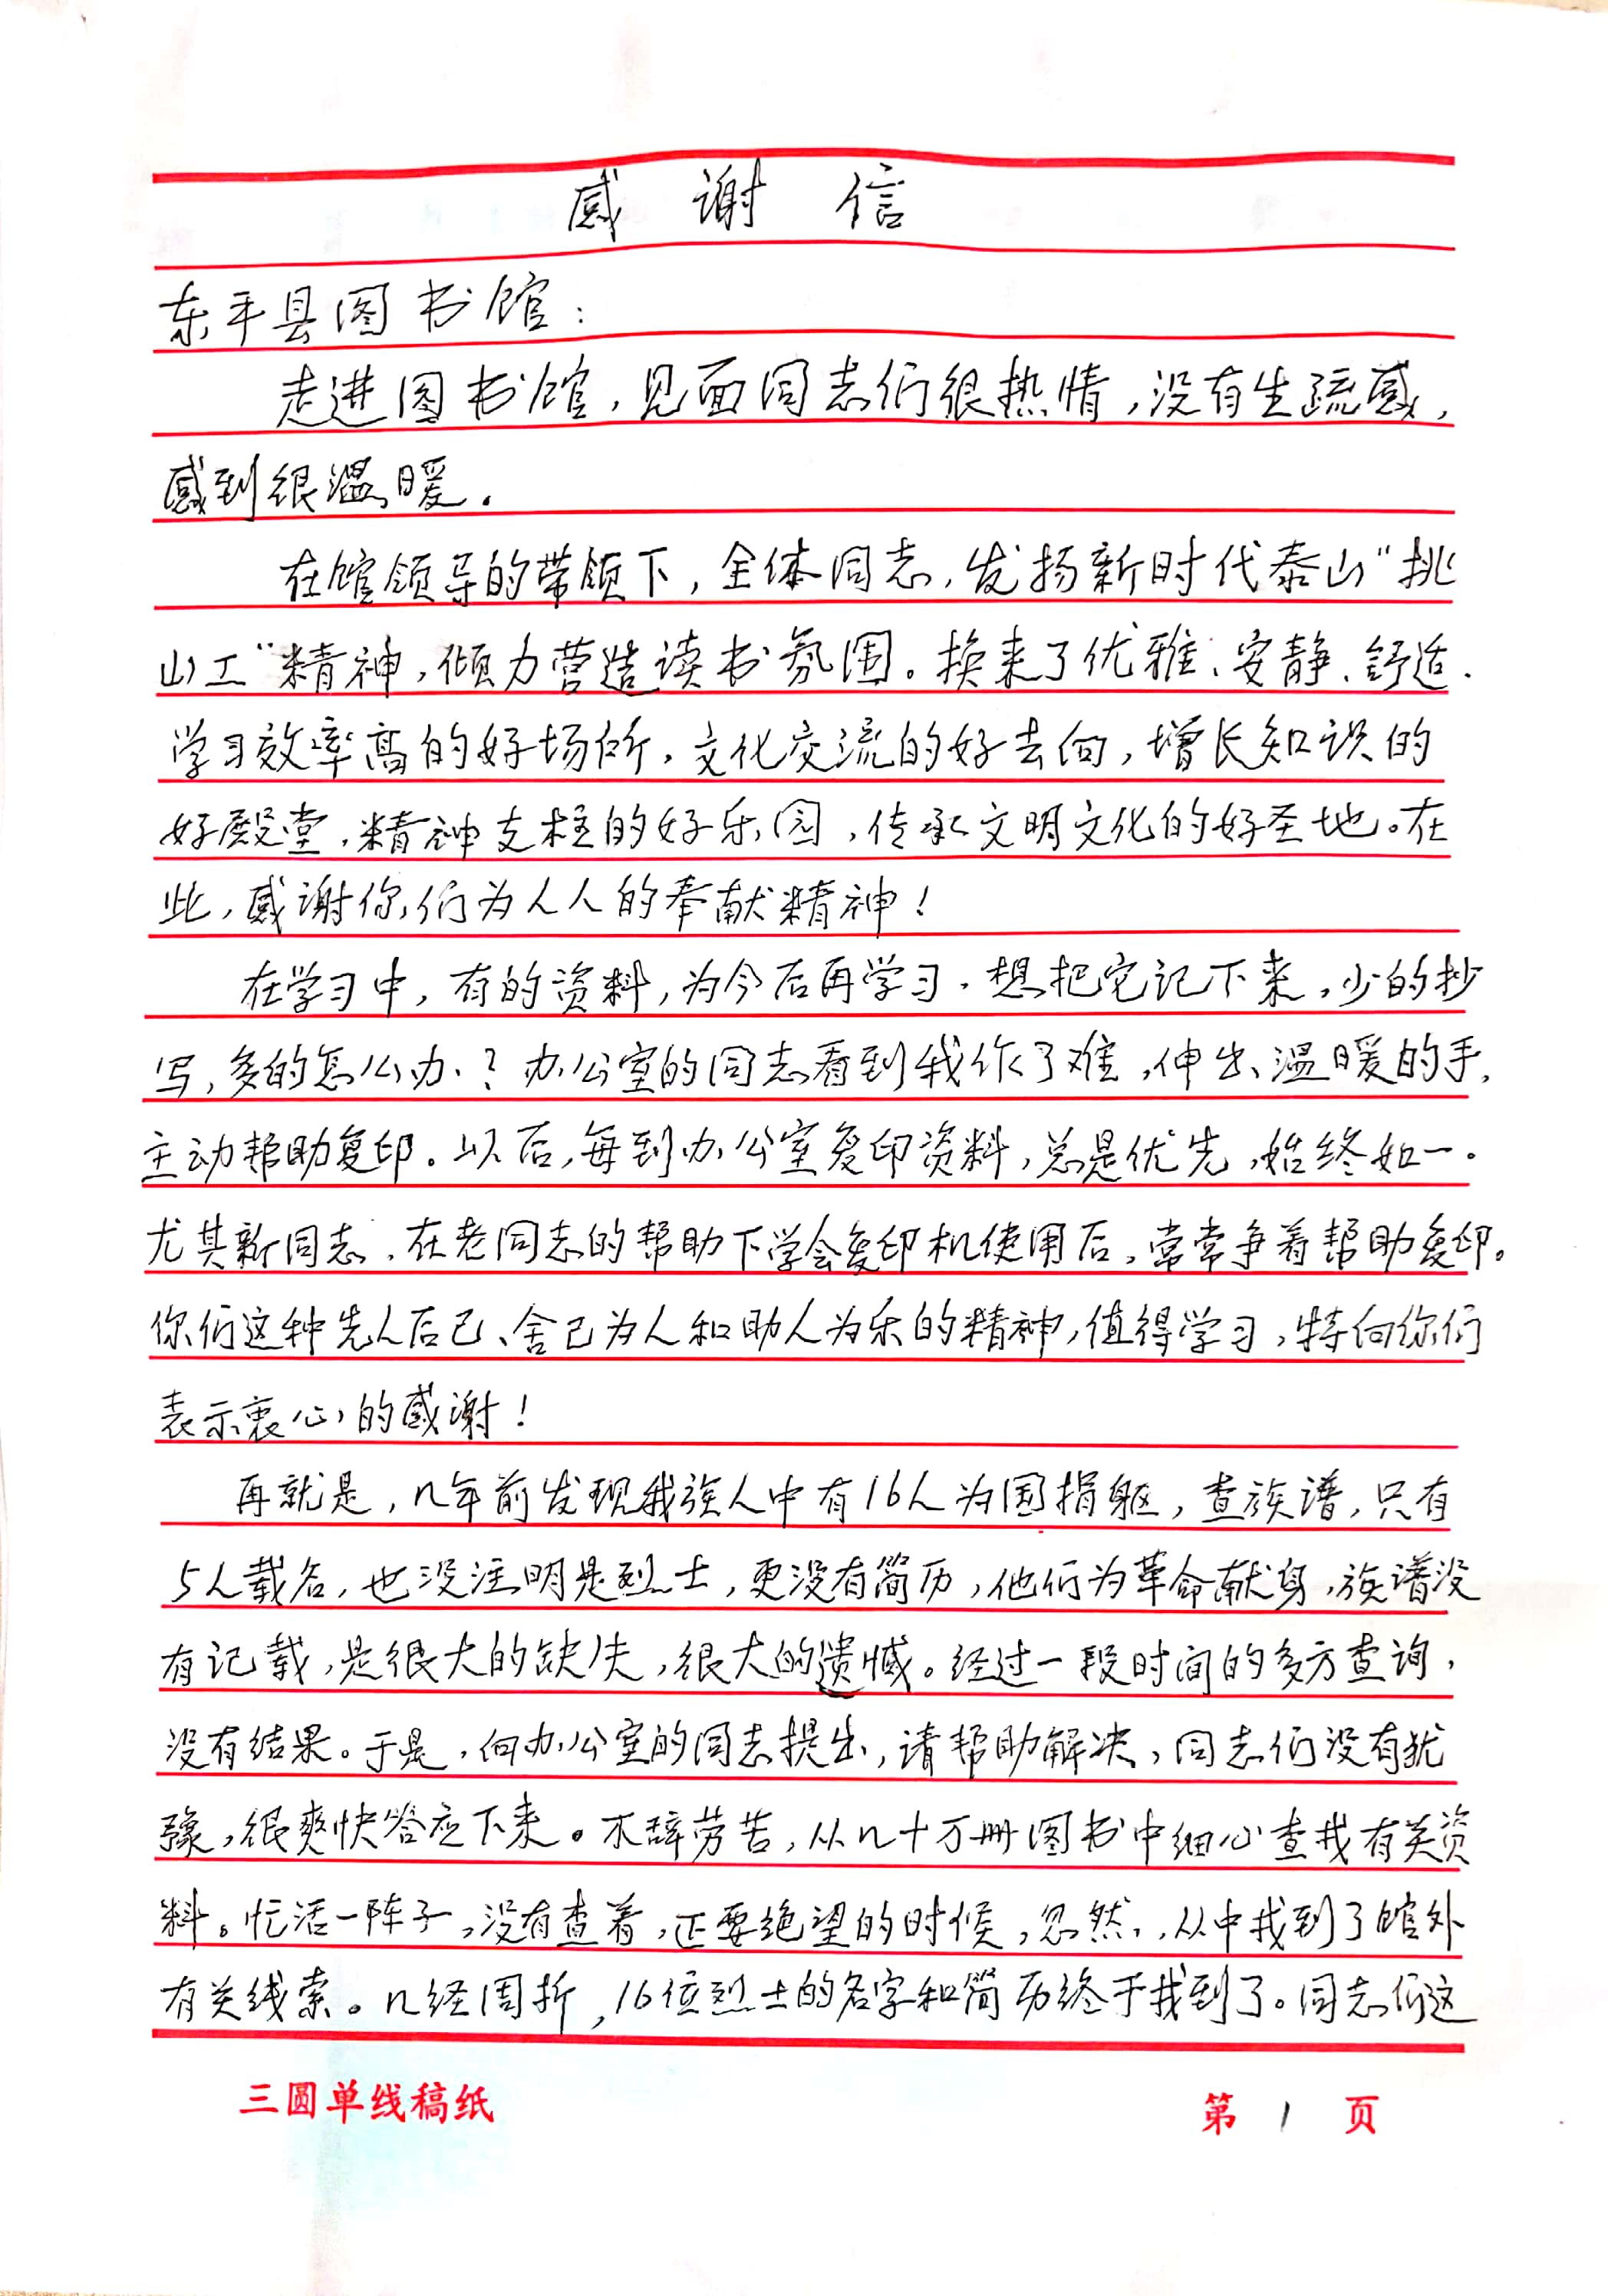 感谢信
东平县图书馆：
走进图书馆，见面同志们很热情，没有生疏感，
感到很温暖。
在馆领导的带领下，全体同志，发扬新时代泰山“挑
山工”精神，倾力营造读书氛围。换来了优雅、安静、舒适、
学习效率高的好场所，文化交流的好去向，增长知识的
好殿堂，精神支柱的好乐园，传承文明文化的好圣地。在
此，感谢你们为人人的奉献精神！
在学习中，有的资料，为今后再学习，想把它记下来，少的抄
写，多的怎么办？办公室的同志看到我作了难，伸出温暖的手，
主动帮助复印。以后，每到办公室复印资料，总是优先，始终如一。
尤其新同志，在老同志的帮助下学会复印机使用后，常常争着帮助复印。
你们这种先人后己、舍己为人和助人为乐的精神，值得学习，特向你们
表示衷心的感谢！
再就是，几年前发现我族人中有16人为国捐躯，查族谱，只有
5人载名，也没注明是烈士，更没有简历，他们为革命献身，族谱没
有记载，是很大的缺失，很大的遗憾。经过一段时间的多方查询，
没有结果。于是，向办公室的同志提出，请帮助解决，同志们没有犹
豫，很爽快答应下来。不辞劳苦，从几十万册图书中细心查找有关资
料。忙活一阵子，没有查着，正要绝望的时候，忽然，从中找到了馆外
有关线索。几经周折，16位烈士的名字和简历终于找到了。同志们这
三圆单线稿纸
第 1 页